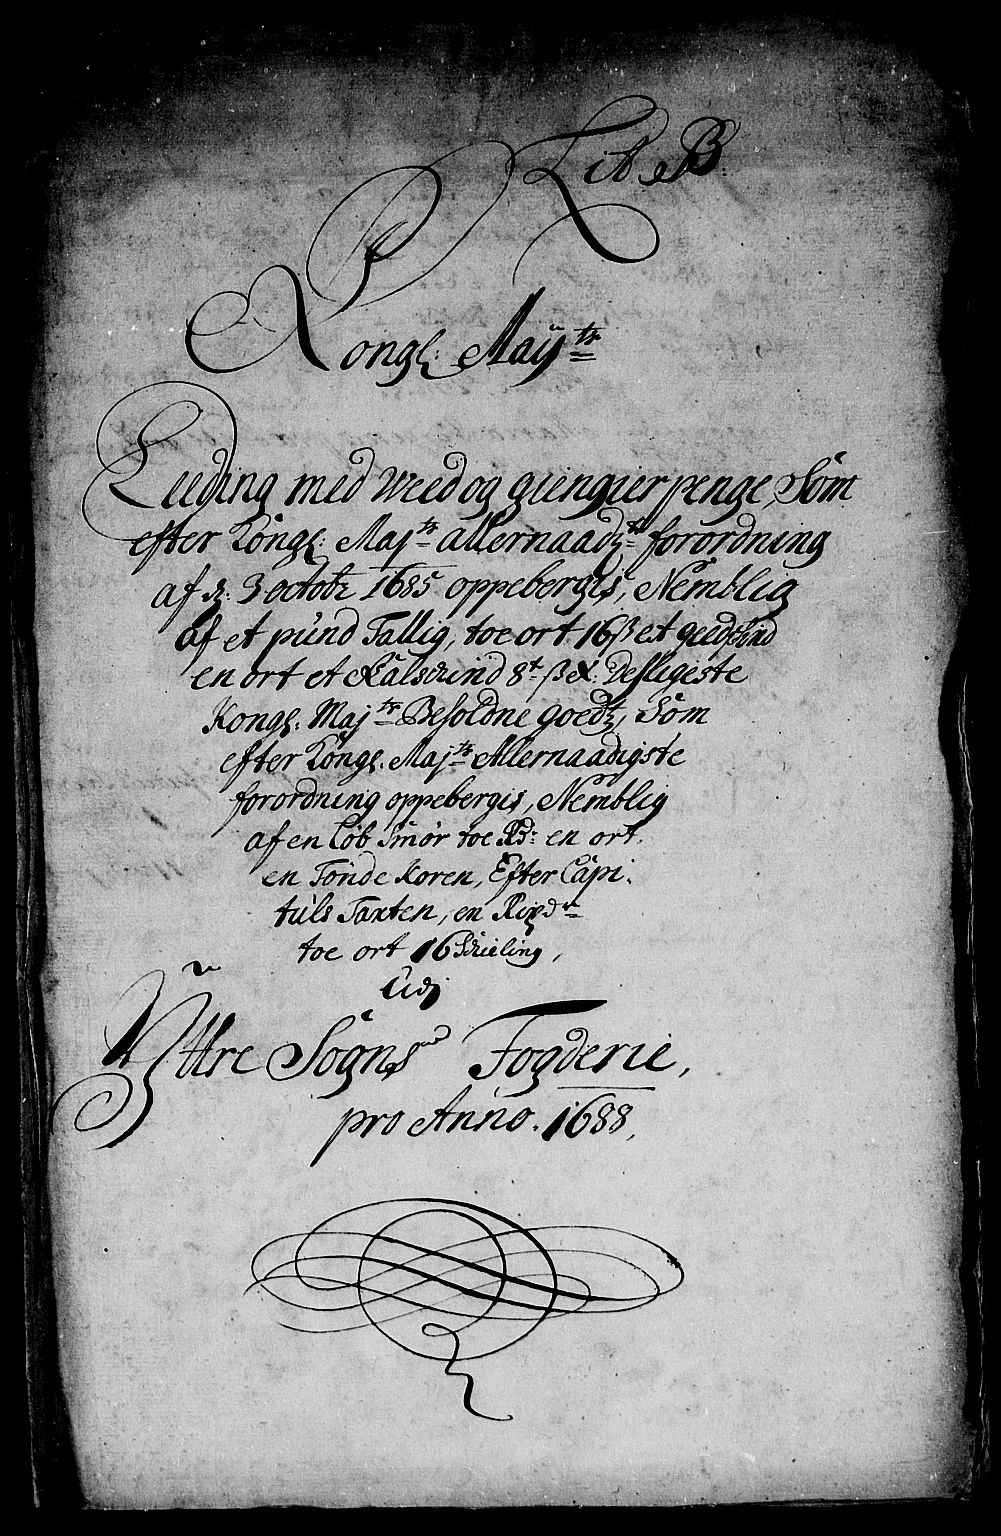 Lit. B:
Kongl: Maÿ:ts
Leeding med Weed og giengier penge, Som
efter Kongl: Maj:ts allernaadh:te forordning
af d: 3 octobr 1685 oppebergis, Nemblig
af et pund Tallig, toe ort 16 β et geedschind
en ort et Kalschind 8t β &: Desligeste
Kongl: Maj:ts Besoldne goedtz, Som
efter Kongl. Maj:ts Allernaadigste
forordning oppebergis, Nemblig
af en Løb Smør toe Rd: en ort.
en Tønde Koren, Efter Capi:
tuls Taxten, en Rixdr
toe ort 16 Schieling,
Udj
Yttre Sogns Fogderie,
pro Anno. 1688,